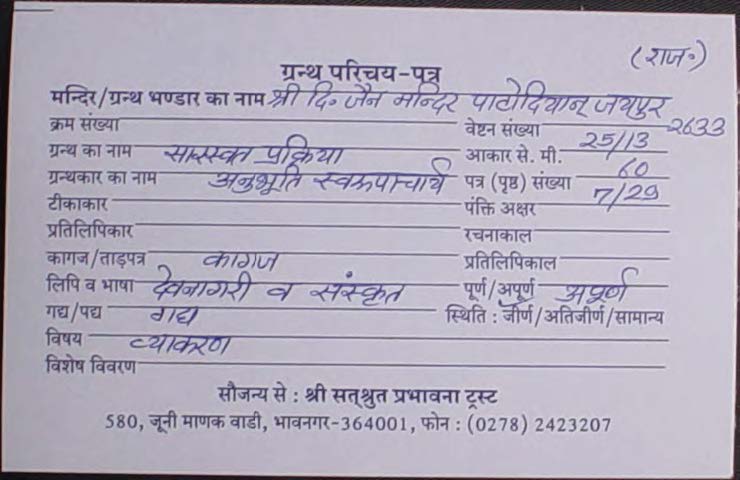 (राज॰)
ग्रन्थ परिचय-पत्र
मन्दिर/ग्रन्थ भण्डार का नाम श्री दि॰ जैन मन्दिर पाटोदियान् जयपुर
क्रम संख्या वेष्टन संख्या 2633
ग्रन्थ का नाम सारस्वत प्रक्रिया आकार से. मी. 25/13
ग्रन्थकार का नाम अनुभूति स्वरूपाचार्य पत्र (पृष्ठ) संख्या 60
टीकाकार पंक्ति अक्षर 7/29
प्रतिलिपिकार रचनाकाल
कागज/ताड़पत्र कागज प्रतिलिपिकाल
लिपि व भाषा देवनागरी व संस्कृत पूर्ण/अपूर्ण अपूर्ण
गद्य/पद्य गद्य स्थिति : जीर्ण/अतिजीर्ण/सामान्य
विषय व्याकरण
विशेष विवरण
सौजन्य से : श्री सत्श्रुत प्रभावना ट्रस्ट
580, जूनी माणक वाडी, भावनगर-364001, फोन : (0278) 2423207